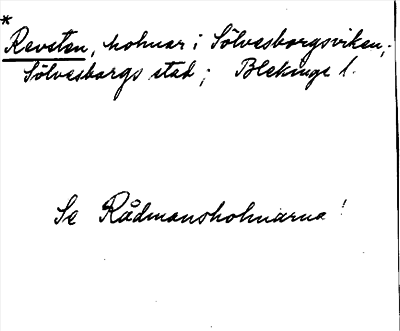 *
Revsten, holmar i Sölvesborgsviken,
Sölvesborgs stad; Blekinge l.
Se Rådmansholmarna!